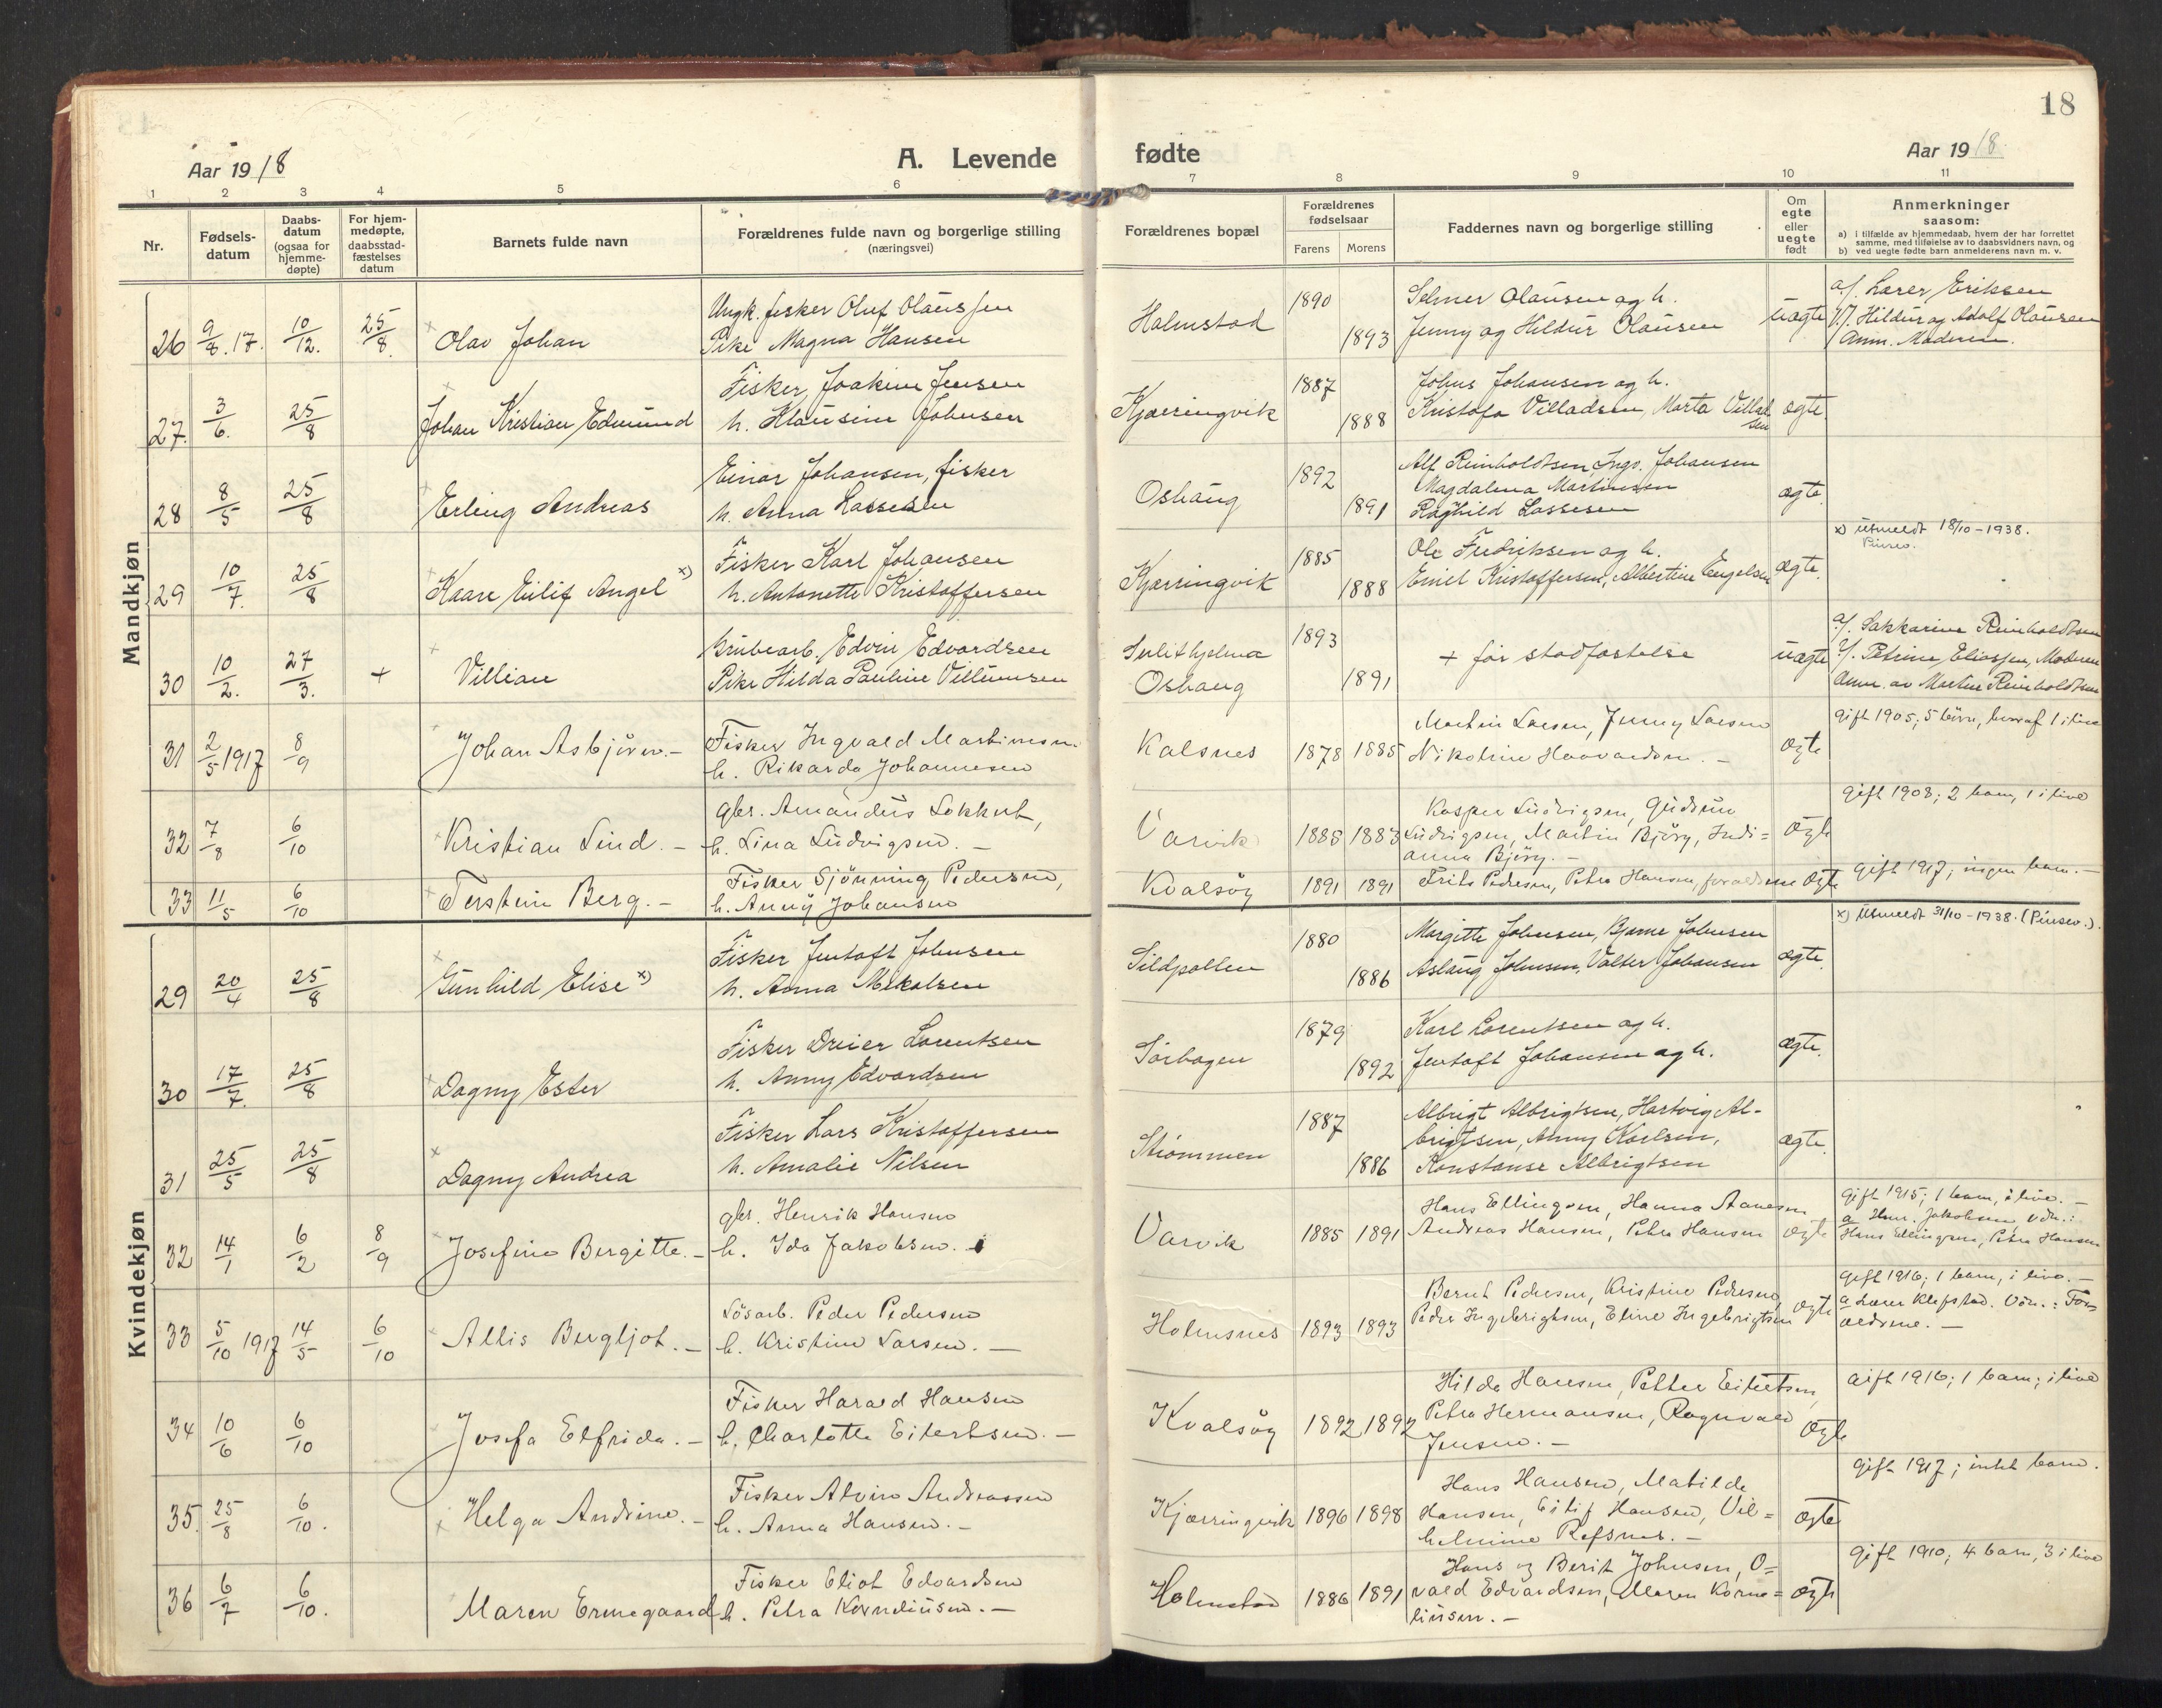 18
Aar 1918
A. Levende fødte
Aar 1918
1 2 3 4 5 6 7 8 9 10 11
Nr.
Fødsels-
datum
Daabs-
datum
(ogsaa for
hjemme-
døpte)
For hjem-
medøpte,
daabsstad-
fæstelses
datum
Barnets fulde navn
Forældrenes fulde navn og borgerlige stilling
(næringsvei)
Forældrenes bopæl
Forældrenes
fødselsaar
Farens Morens
Faddernes navn og borgerlige stilling
Om
egte
eller
uegte
født
Anmerkninger
saasom:
a) i tilfælde av hjemmedaab, hvem der har forrettet
samme, med tilføielse av to daabsvidners navn, og
b) ved uegte fødte barn anmelderens navn m. v.
Mandkjøn
26 9/8.17. 10/12. 25/8. Olav Johan
Ungk. fisker Oluf Olaussen
Pike Magna Hansen
Holmstad 1890 1893
Selmer Olausen og h.
Jenny og Hildur Olausen
uægte
a/. Lærer Eriksen
Hildur og Adolf Olausen
Anm. Moderen.
27. 3/6. 25/8 Johan Kristian Edmund
Fisker Joakim Jensen
h. Klausine Johnsen
Kjærringvik 1887 1888
Johns Johansen og h.
Kristofa Villadsen, Marta Villad
sen
ægte.
28 8/5 25/8 Erling Andreas
Einar Johansen, fisker
h. Anna Lassesen
Oshaug 1892 1891
Alf Reinholdtsen, Ingv. Johansen
Magdalena Martinsen
Raghild Lassesen
ægte.
29 10/7. 25/8 Kaare Eilif Angel x)
Fisker Karl Johansen
h. Antonette Kristoffersen
Kjærringvik 1885 1888
Ole Fredriksen og h.
Emil Kristoffersen, Albertine Engelsen
ægte.
x) Utmeldt 18/10-1938.
Pinsev.
30 10/2. 27/3. + Villian
Grubearb. Edvin Edvardsen
Pike Hilda Pauline Villumsen
Sulithjelma
Oshaug
1893 1891
+ før stadfæstelse
uægte
a/. Sakkarine Reinholdtsen
Petrine Eliassen, Moderen
Anm. av Martin Reinholdtsen
31 2/5 1917 8/9 Johan Asbjörn. -
Fisker Ingvald Martinsen.
h. Rikarda Johannesen
Kalsnes 1878 1885
Martin Larsen, Jenny Larsen
Nikoline Haavardsen. -
ægte
Gift 1905, 5 börn, hvoraf 1 i live
32 7/8 6/10 Kristian Lind. -
gbr. Amandus Lokkert,
h. Lina Ludvigsen. -
Varvik 1885 1883
Kasper Ludvigsen, Gudrun
Ludvigsen, Martin Bjerg, Indi=
anna Bjerg. -
ægte
Gift 1908; 2 barn, 1 i live
33 11/5 6/10 Terstein Berg. -
Fisker Sjönning Pedersen,
h. Anny Johansen
Kvalsöy 1891 1891
Frits Pedersen, Petra Hansen, forældrene
ægte
gift 1917; ingen barn. -
Kvindekjøn
29 20/4 25/8 Gunhild Elise x)
Fisker Jentoft Johnsen
h. Anna Mikalsen
Sildpollen 1880 1886
Margitte Johnsen, Bjarne Johnsen
Aslaug Johnsen, Valter Johansen
ægte.
x) Utmeldt 31/10-1938. (Pinsev.).
30 17/7. 25/8 Dagny Ester
Fisker Dreier Lorentsen
h. Anny Edvardsen
Sørbogen 1879 1892
Karl Lorentsen og h.
Jentoft Johansen og h.
ægte.
31 25/5 25/8 Dagny Andrea
Fisker Lars Kristoffersen
h. Amalie Nilsen
Strømmen 1887 1886
Albrigt Albrigtsen, Hartvig Al-
brigtsen, Anny Karlsen,
Konstanse Albrigtsen
ægte.
32 14/1 6/2 8/9 Josefine Bergitte. -
gbr. Henrik Hansen
h. Ida Jakobsen.
Varvik 1885 1891
Hans Ellingsen, Hanna Aanesen
Andreas Hansen, Petra Hansen
ægte
Gift 1915; 1 barn, i live. -
a Henr. Jakobsen, Vdn.:
Hans Ellingsen, Petra Hansen
33 5/10 1917 14/5 6/10 Allis Bergljot. -
Lösarb. Peder Pedersen
h. Kristine Larsen. -
Holmsnes 1893 1893
Bernt Pedersen, Kristine Pedersen,
Peder Ingebrigtsen, Eline Ingebrigtsen
ægte
Gift 1916; 1 barn, i live. -
a Lærer Klefstad. Vdn.: For=
ældrene. -
34 10/6 6/10 Josefa Elfrida. -
Fisker Harald Hansen
h. Charlotte Eilertsen. -
Kvalsöy 1892 1892
Hilda Hansen, Petter Eilertsen,
Petra Hermansen, Ragnvald
Jensen. -
ægte
Gift 1916; 1 barn; i live
35. 25/8 6/10. Helga Andrine. -
Fisker Alvin Andreassen
h. Anna Hansen. -
Kjærringvik 1896 1898
Hans Hansen, Matilde
Hansen, Eilif Hansen, Vil=
helmine Refsnes. -
ægte
Gift 1917; intet barn.
36 6/7 6/10. Maren Ermegaard
Fisker Eliot Edvardsen
h. Petra Korneliusen. -
Holmstad 1886 1891
Hans og Berit Johnsen, O=
vald Edvardsen, Maren Korne=
liusen. -
ægte
Gift 1910; 4 barn, 3 i live